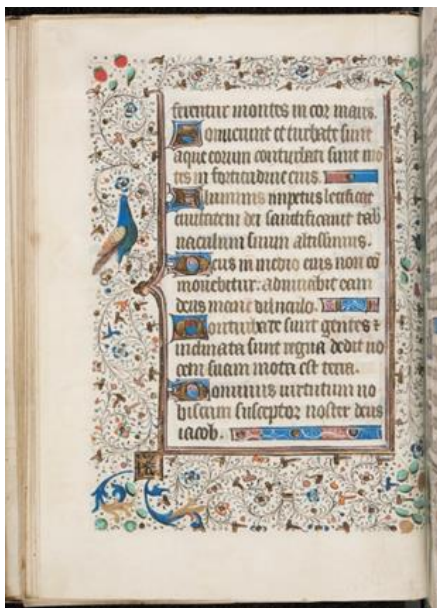 ferentur montes in cor maris.
Sonuerunt et turbate sunt
aque eorum conturbati sunt mo
tes in fortitudine eius.
Fluminis impetus letificat
ciuitatem dei sanctificauit tab
naculum suum altissimus.
Deus in medio eius non co
mouebitur: adiuuabit eam
deus mane diluculo.
Conturbate sunt gentes et
inclinata sunt regna dedit uo
cem suam mota est terra.
Dominus uirtutum no
biscum susceptor noster deus
iacob.